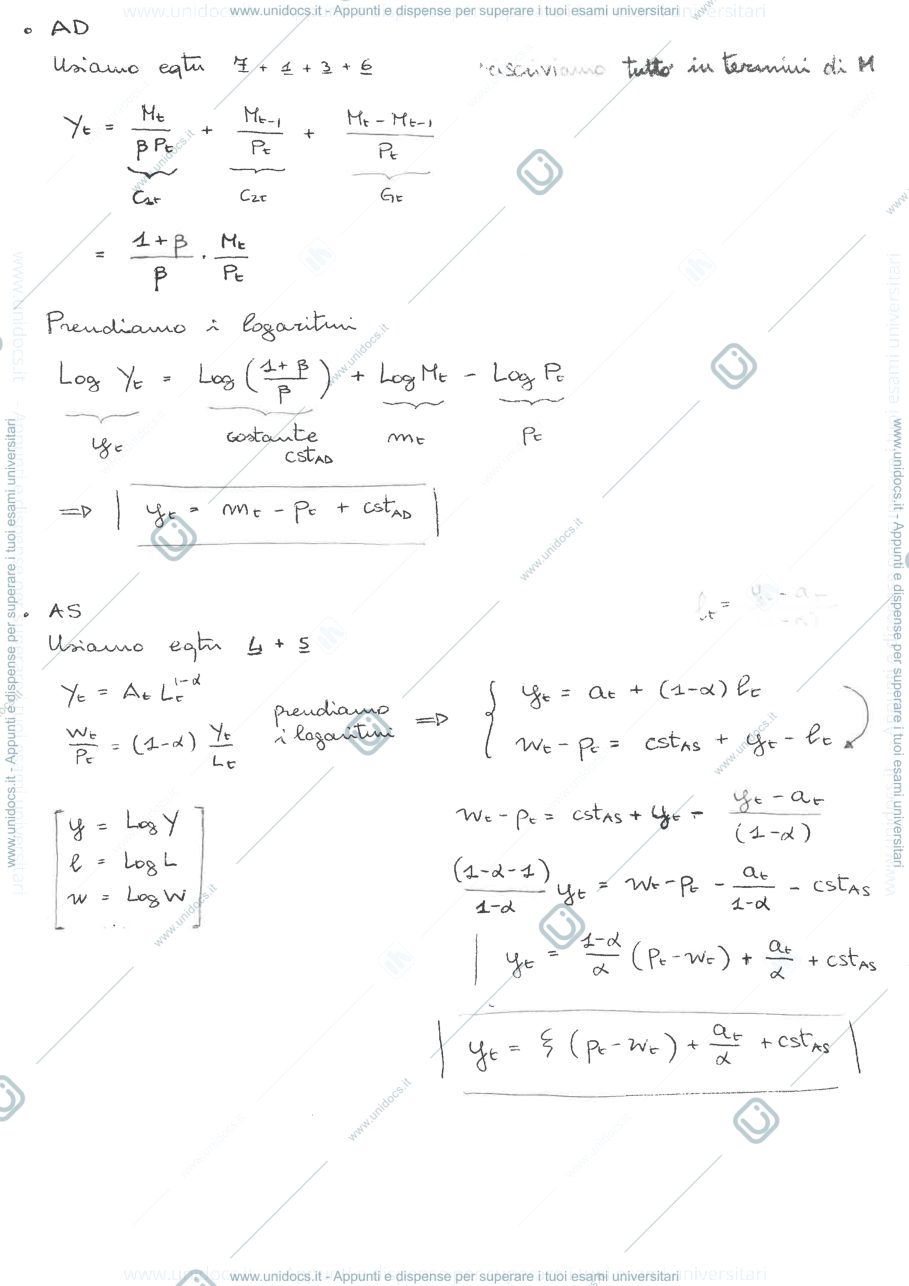 www.unidocs.it - Appunti e dispense per superare i tuoi esami universitari
• AD
Usiamo eqtn 7 + 1 + 3 + 6 riscriviamo tutto in termini di M
Y_t = M_t / (β P_t) + M_{t-1} / P_t + (M_t - M_{t-1}) / P_t
C_{1t} C_{2t} G_t
= (1+β)/β · M_t / P_t
Prendiamo i logaritmi
Log Y_t = Log ((1+β)/β) + Log M_t - Log P_t
y_t costante m_t p_t
cst_{AD}
⇒ | y_t = m_t - p_t + cst_{AD} |
l_t = (y_t - a_t) / (1-α)
• AS
Usiamo eqtn 4 + 5
Y_t = A_t L_t^{1-α}
W_t / P_t = (1-α) Y_t / L_t
prendiamo
i logaritmi ⇒
{ y_t = a_t + (1-α) l_t
w_t - p_t = cst_{AS} + y_t - l_t
[ y = Log Y
l = Log L
w = Log W
.. . ]
w_t - p_t = cst_{AS} + y_t - (y_t - a_t) / (1-α)
(1-α-1)/(1-α) y_t = w_t - p_t - a_t/(1-α) - cst_{AS}
| y_t = (1-α)/α (p_t - w_t) + a_t/α + cst_{AS}
| y_t = ξ (p_t - w_t) + a_t/α + cst_{AS} |
www.unidocs.it - Appunti e dispense per superare i tuoi esami universitari